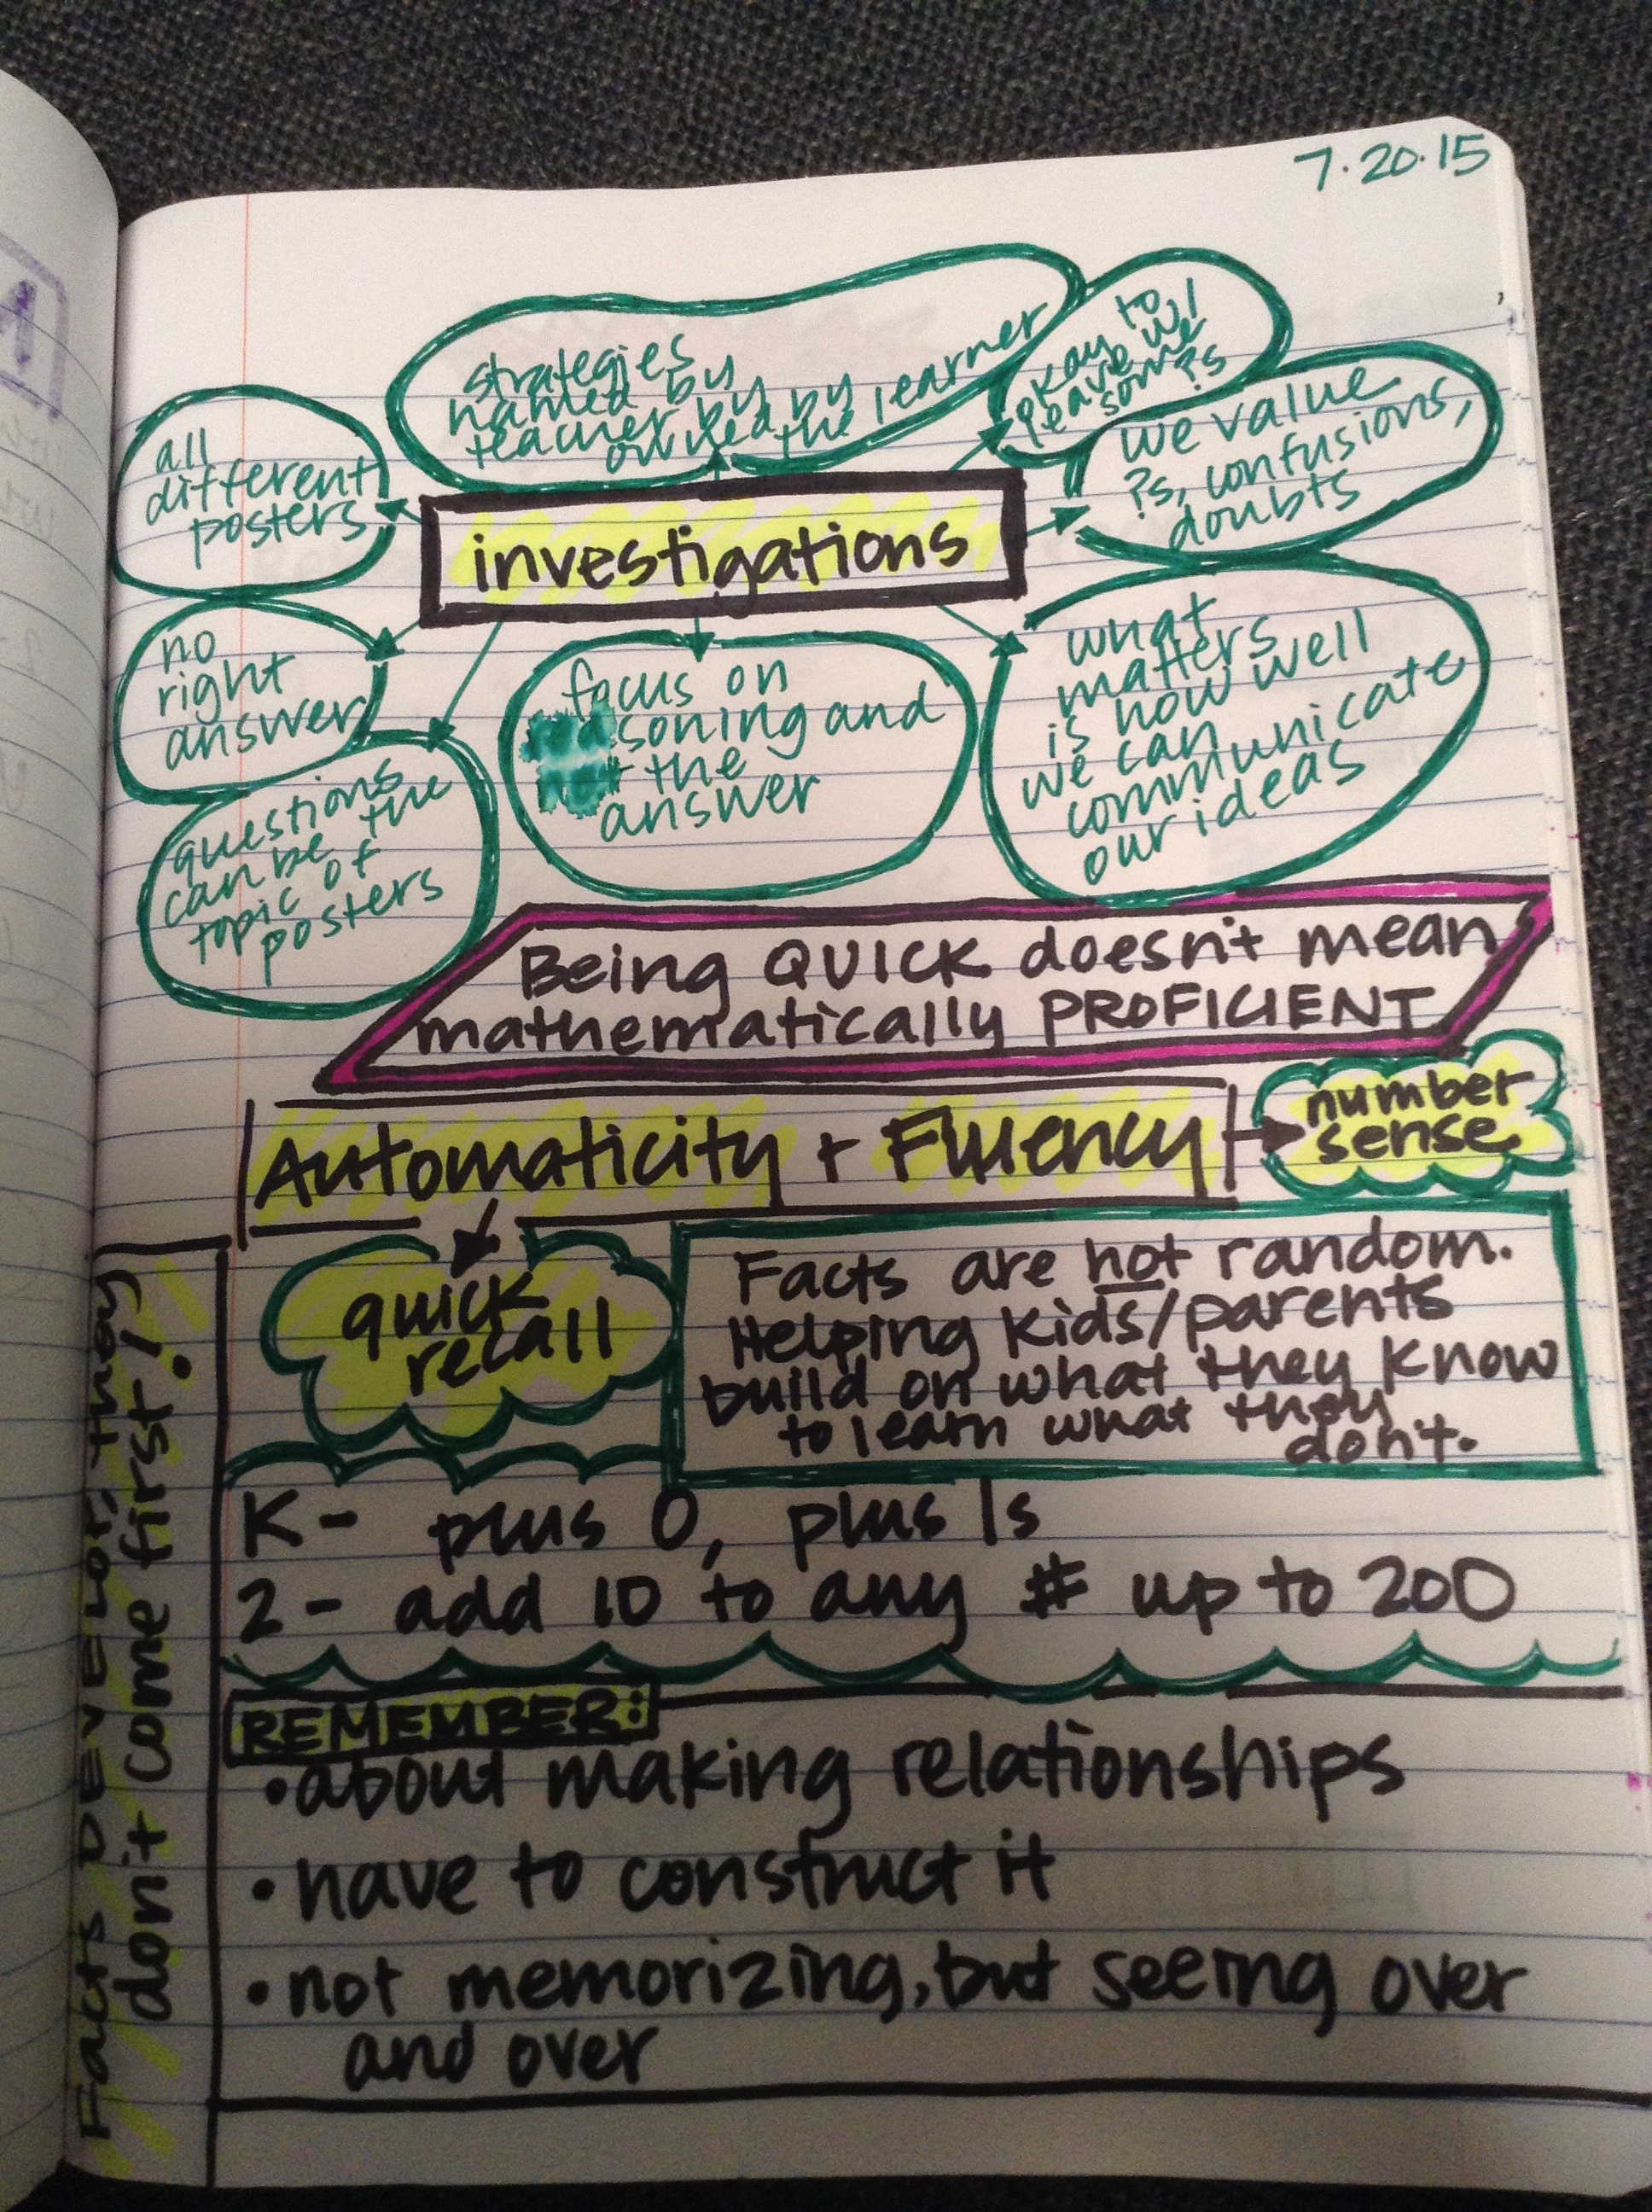 7.20.15
strategies
named by
teacher by
owned by
the learner
okay to
leave w/
some ?s
we value
?s, confusions,
doubts
all
different
posters
investigations
no
right
answer
focus on
reasoning and
not the
answer
what
matters
is how well
we can
communicate
our ideas
questions
can be the
topic of
posters
Being QUICK doesn't mean
mathematically PROFICIENT
Automaticity + Fluency
number
sense
quick
recall
Facts are not random.
Helping kids/parents
build on what they know
to learn what they
don't.
K- plus 0, plus 1s
2- add 10 to any # up to 200
REMEMBER:
•about making relationships
•have to construct it
•not memorizing, but seeing over
and over
Facts DEVELOP, they
don't come first!